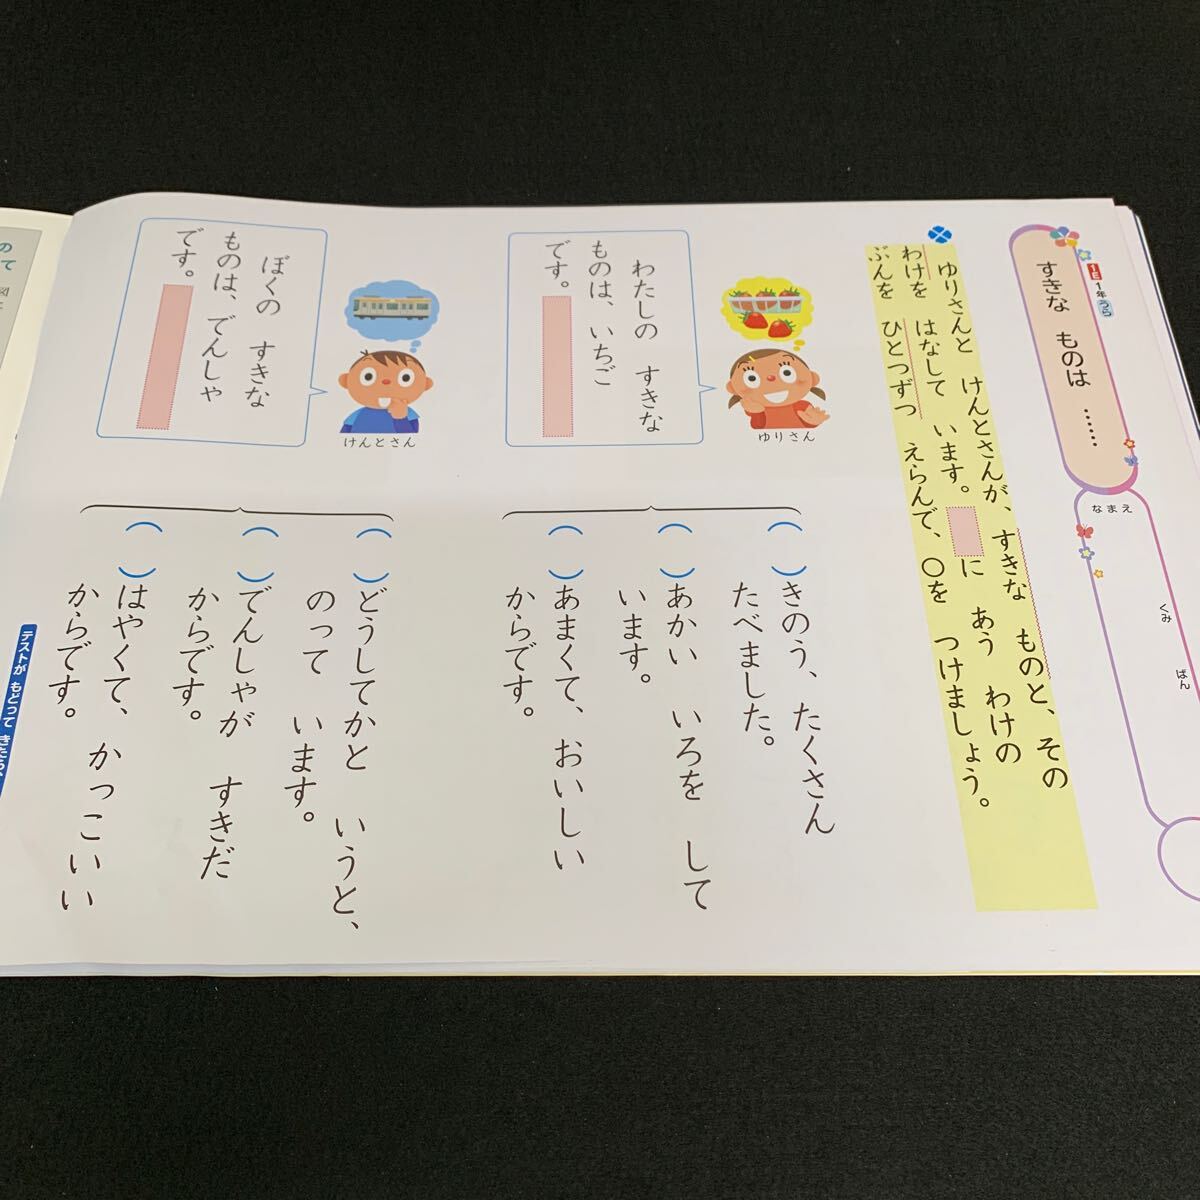 1E 1年 うら
すきな ものは ……
なまえ
くみ
ばん
ゆりさんと けんとさんが、すきな ものと、その
わけを はなして います。 に あう わけの
ぶんを ひとつずつ えらんで、○を つけましょう。
わたしの すきな
ものは、いちご
です。
ゆりさん
( )きのう、たくさん
たべました。
( )あかい いろを して
います。
( )あまくて、おいしい
からです。
ぼくの すきな
ものは、でんしゃ
です。
けんとさん
( )どうしてかと いうと、
のって います。
( )でんしゃが すきだ
からです。
( )はやくて、かっこいい
からです。
テストが もどって きたら、
の
て
図